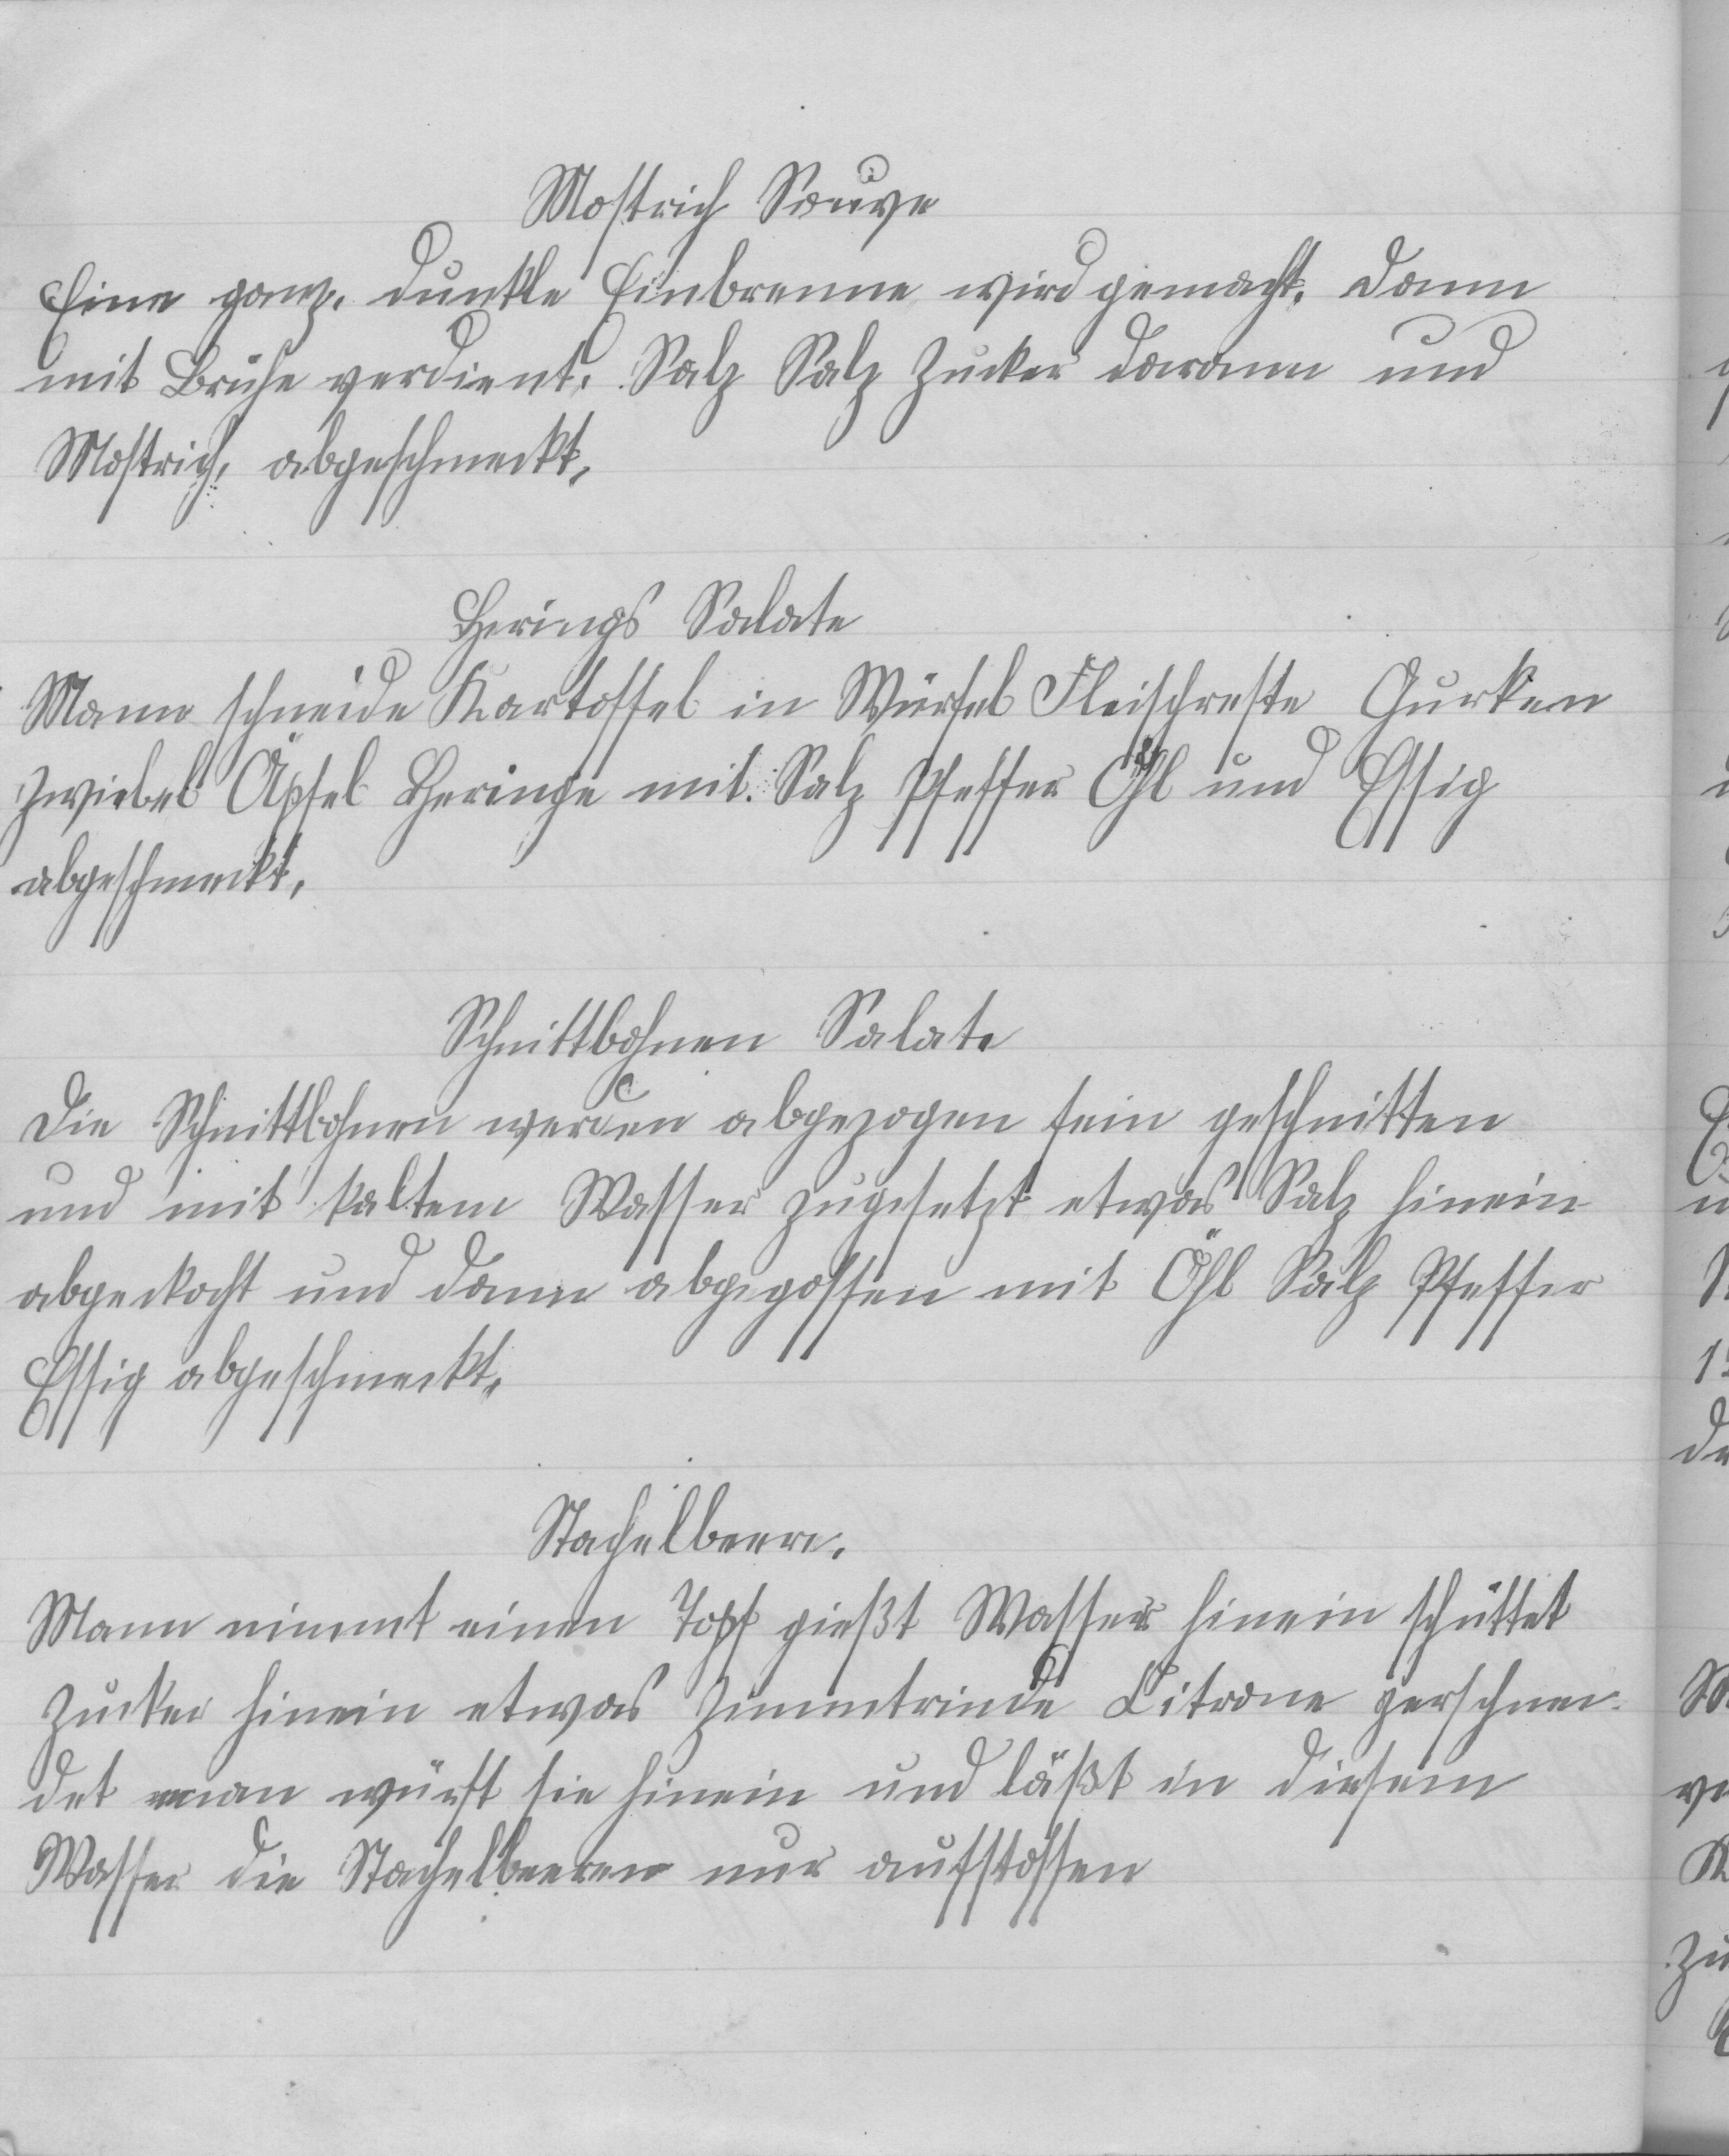 Mostrich Sauce
Eine ganz. dunkle Einbrenne wird gemacht. dann
mit Brühe verdient. Salz Salz Zucker darann und
Mostrich, abgeschmeckt.
Herings Salate
Mann schneide Kartoffel in Würfel Fleischreste Gurken
Zwiebel Äpfel Heringe mit Salz Pfeffer Öhl und Essig
abgeschmeckt.
Schnittbohnen Salate
Die Schnittbohnen werden abgezogen fein geschnitten
und mit kaltem Wasser zugesetzt etwas Salz hinein
abgeckocht und dann abgegossen mit Öhl Salz Pfeffer
Essig abgeschmeckt.
Stachelbeere.
Mann nimmt einen Topf gießt Wasser hinein schüttet
Zucker hinein etwas Zimmtrinde Citrone zerschnei-
det man würft sie hinein und läßt in diesem
Wasser die Stachelbeeren nur aufstossen